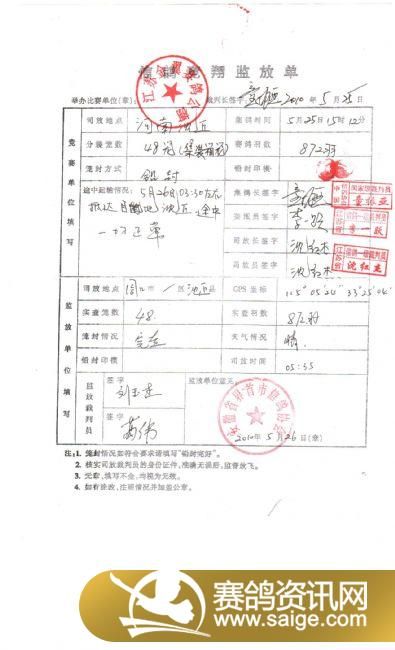 信鸽竞翔监放单
举办比赛单位(章): 裁判长签字 2010年5月25日
竞赛单位填写
司放地点 河南沈丘 集鸽时间 5月25日15时12分
分装笼数 48 赛鸽羽数 872羽
笼封方式 铅封 铅封印模
途中起输情况: 5月26日03:30左右 集鸽长签字
抵达目的地沈丘途中
一切正常
验棚员签字 李一跃
司放长签字 沈红杰
司放员签字 沈红杰
国家级裁判员
董雄亚
李一跃
沈红杰
监放单位填写
司放地点 周口市 沈丘县 GPS坐标 115°05′24″ 33°25′04″
实查笼数 48 实查羽数 872羽
笼封情况 完整 天气情况 晴
铅封印模 司放时间 05:35
监放裁判员
签字
签字
监放单位意见:
安徽省界首市信鸽协会
2010年5月26日(章)
注:1. 笼封情况如符合要求请填写"铅封完好"。
2. 核实司放裁判员的身份证件,准确无误后,监督放飞。
3. 无章、填写不全,均视为无效。
4. 如有涂改,注明情况并加盖公章。
赛鸽资讯网
www.saige.com